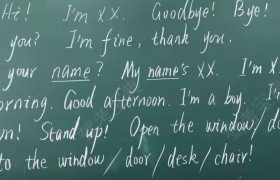 Hi! I'm XX. Goodbye! Bye!
you? I'm fine, thank you.
your name? My name's XX. I'm
orning. Good afternoon. I'm a boy. I'
wn! Stand up! Open the window/do
to the window/door/desk/chair!